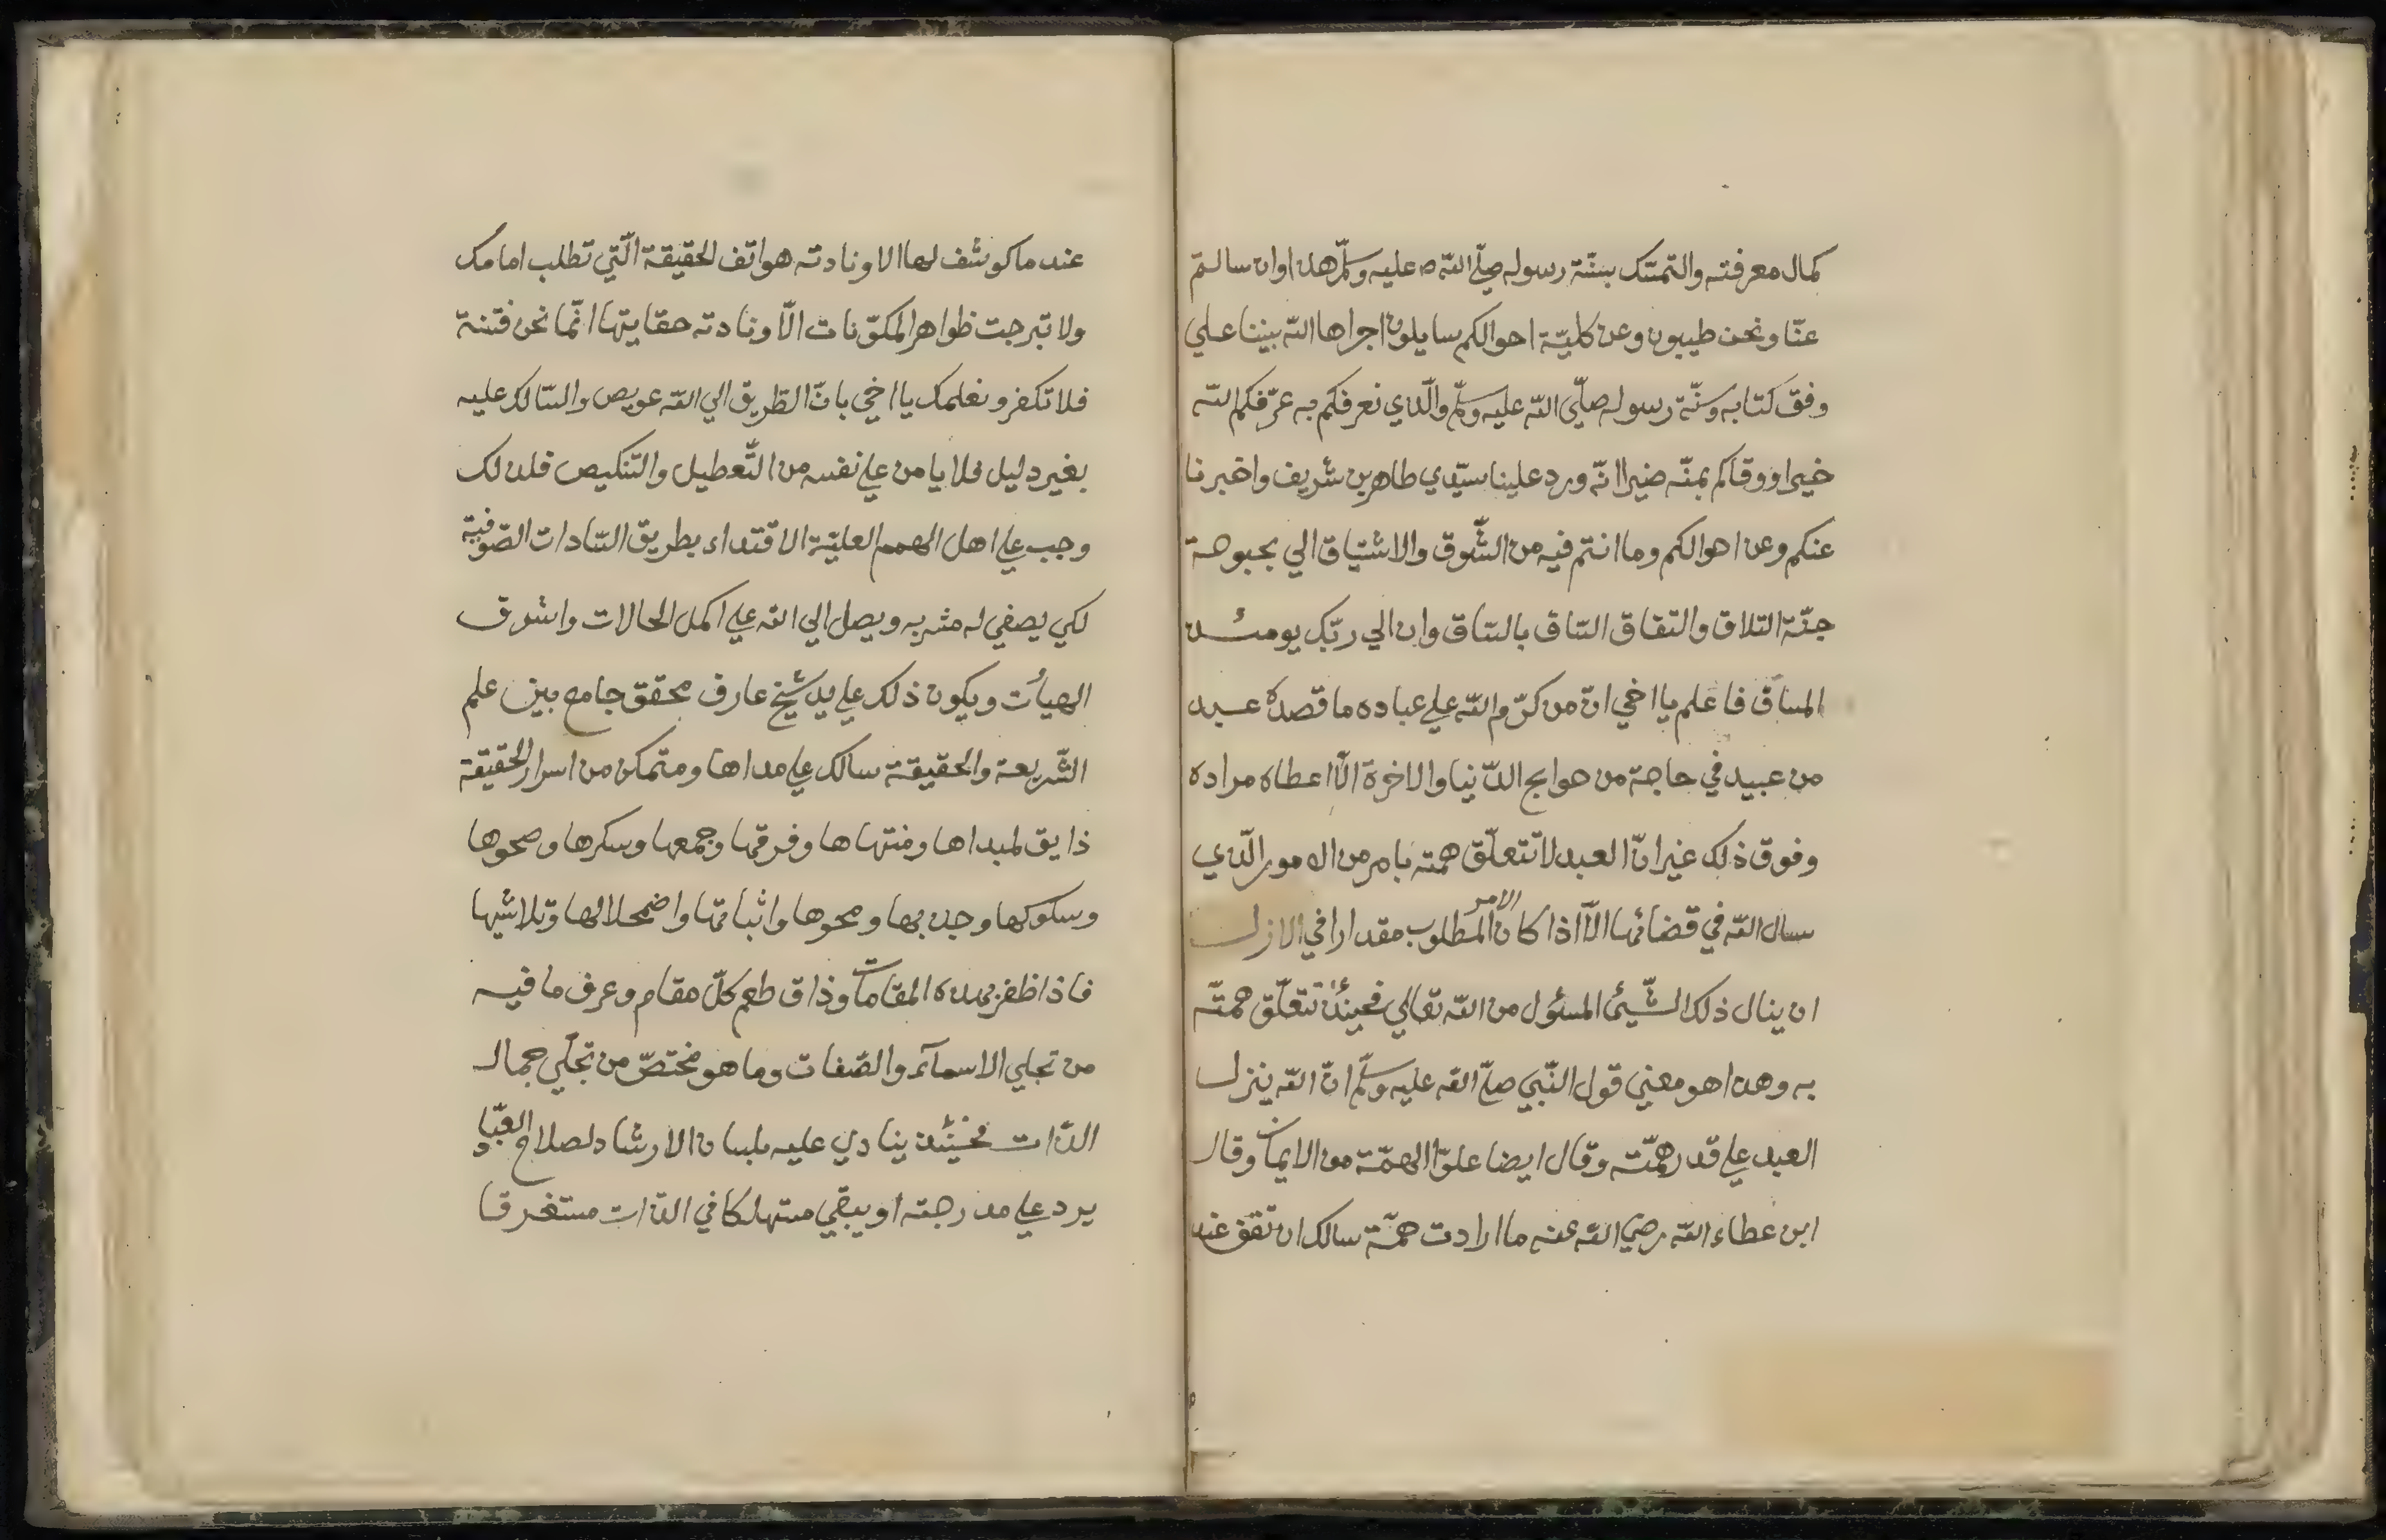 كمال معرفته والتمسّك بسنّة رسوله صلّي اللّه عليه وسلّم هذا وان سالتم
عنّا ونحن طيبون وعن كليّة احوالكم سايلون اجراها اللّه بيننا علي
وفق كتابه وسنّة رسوله صلّي اللّه عليه وسلّم والّذي نعرفكم به عرّفكم اللّه
خيرا ووقاكم بمنّه ضيرا انّه ورد علينا سيّدي طاهر بن شريف واخبرنا
عنكم وعن احوالكم وما انتم فيه من الشّوق والاشتياق الي بحبوحة
جنّة التلاق والتفاق السّاق بالسّاق وان الي ربّك يومئذ
المساق فاعلم يا اخي انّ من كرّم اللّه علي عباده ما قصده عبد
من عبيد في حاجة من حوايج الدّنيا والاخرة الّا اعطاه مراده
وفوق ذلك غير انّ العبد لا تتعلّق همته بامر من الامور الّذي
سال اللّه في قضائها الّا اذا كان الامر المطلوب مقدارا في الازل
ان ينال ذلك الشّيئ المسئول من اللّه تعالي فحينئذ تتعلّق همّته
به وهذا هو معني قول النّبي صلّي اللّه عليه وسلّم انّ اللّه ينزل
العبد علي قدر همّته وقال ايضا علوّ الهمّة من الايمان وقال
ابن عطاء اللّه رضي اللّه عنه ما ارادت همّة سالك ان تقف عند
عند ما كوشف لها الا ونادته هواتف الحقيقة الّتي تطلب امامك
ولا تبرجت ظواهر المكوّنات الّا ونادته حقايقها انّما نحن فتنة
فلا تكفر ونعلمك يا اخي بانّ الطّريق الي اللّه عويص والسّالك عليه
بغير دليل فلا يامن علي نفسه من التّعطيل والتّنكيص فلذلك
وجب علي اهل الهمم العليّة الاقتداء بطريق السّادات الصّوفية
لكي يصفي له مشربه ويصل الي اللّه علي اكمل الحالات واشرف
الهيأت ويكون ذلك علي يد شيخ عارف محقق جامع بين علم
الشّريعة والحقيقة سالك علي مداها ومتمكن من اسرار الحقيقة
ذايق لمبداها ومنتهاها وفرقها وجمعها وسكرها وصحوها
وسكوكها وجذبها ومحوها واثباتها واضمحلالها وتلاشيها
فاذا ظفر بهذه المقامات وذاق طعم كلّ مقام وعرف ما فيه
من تجلي الاسمآء والصّفات وما هو مختصّ من تجلّي جمال
الذّات فحينئذ ينادي عليه بلسان الارشاد لصلاح العبّاد
يرد علي مدرجته او يبقي مستهلكا في الذّات مستغرقا